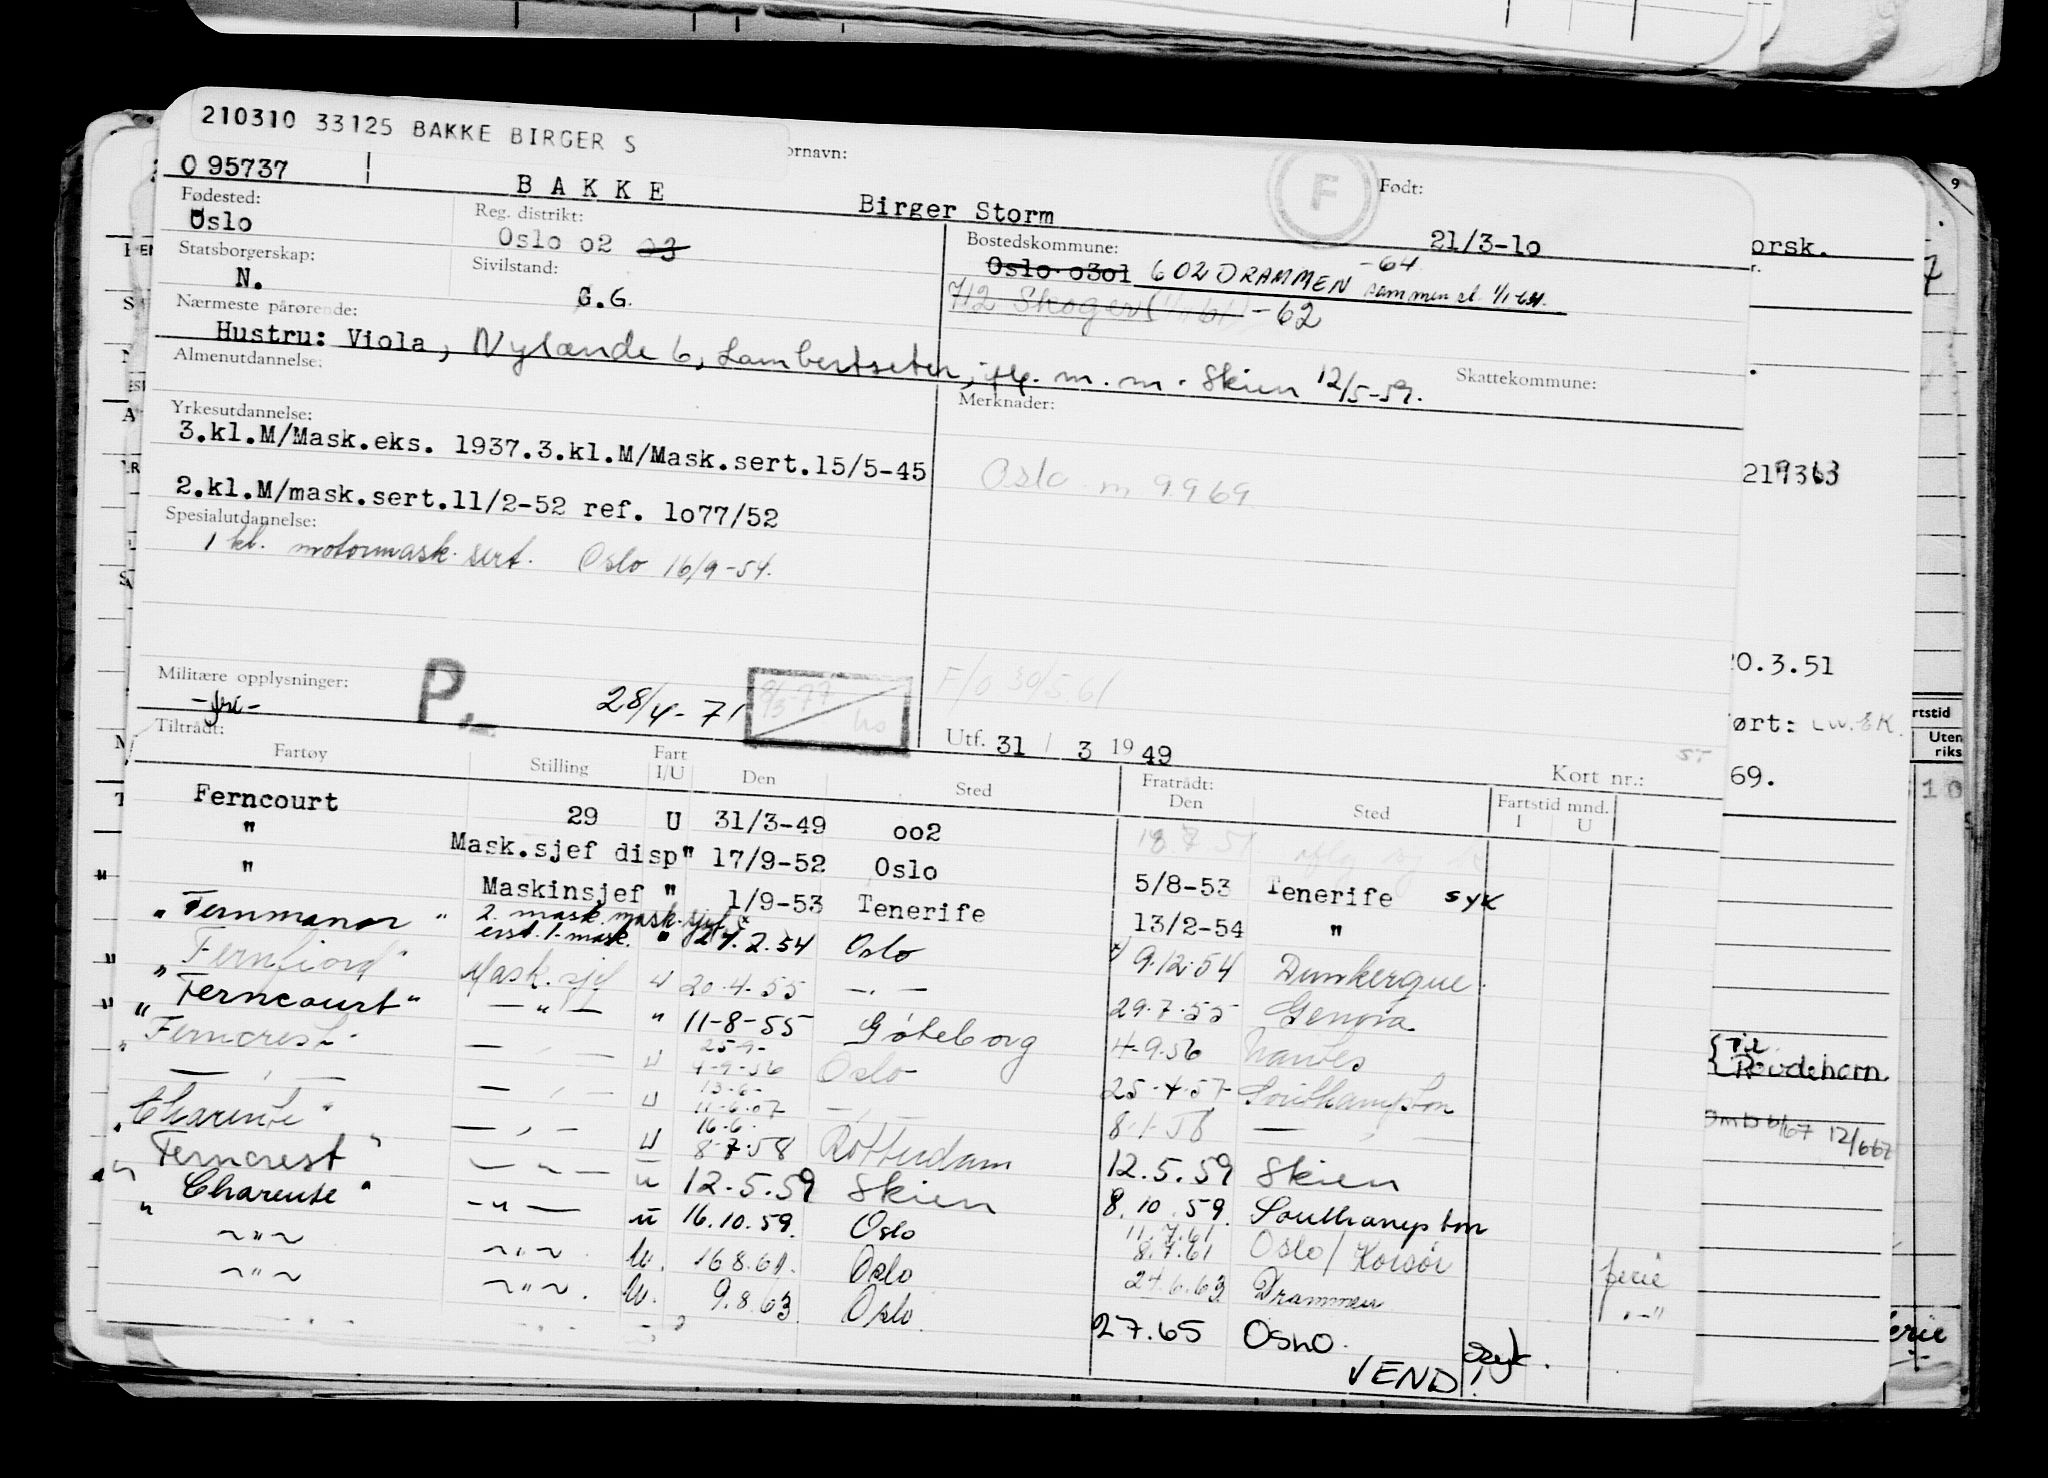 210310 33125 BAKKE BIRGER S
ornavn:
O 95737 BAKKE Birger Storm
F
Født: 21/3-10
Fødested: Oslo
Reg. distrikt: Oslo o2 o3
Bostedskommune: Oslo o3o1 602 DRAMMEN -64
Statsborgerskap: N.
Sivilstand: G.G.
712 Skoger -62
Nærmeste pårørende:
Hustru: Viola, Nylænde 6, Lambertseter, m.m. Skien 12/5-59.
Almenutdannelse:
Skattekommune:
Yrkesutdannelse:
Merknader:
3.kl.M/Mask.eks. 1937.3.kl.M/Mask.sert.15/5-45
Oslo m 9969
2.kl.M/mask.sert.11/2-52 ref. 1o77/52
Spesialutdannelse:
1 kl. motormask. sert. Oslo 16/9-54.
Militære opplysninger:
P.
28/4-71
8/3-77
F/o 30/5 61
Utf. 31 / 3 19 49
Kort nr.:
Tiltrådt:
Fartøy Stilling Fart I/U Den Sted Fratrådt: Den Sted Fartstid mnd. I U
Ferncourt 29 U 31/3-49 oo2
" Mask.sjef disp " 17/9-52 Oslo 5/8-53 Tenerife SYK
" Maskinsjef " 1/9-53 Tenerife 13/2-54 "
"Fernmanor" 2. mask. Oslo 9.12.54 Dunkerque.
"Fernfiord" Mask.sjef U 20.4.55 29.7.55 Genova
"Ferncourt" — " — " 11-8-55 Göteborg 4-9-56
"Ferncrest" U 25-9- 4-9-56 Oslo 25-4-57 Southampton
U 13-6- 11-6-57 8-1-58
"Charente" U 16-6- 8-7-58 Rotterdam 12.5.59 Skien
"Ferncrest" — " — u 12.5.59 Skien 8.10.59. Southampton
"Charente" - " — u 16.10.59. Oslo 11.7.61 8.7.61 Oslo/Korsör ferie
~ " ~ ~ " ~ U. 16.8.61. Oslo 24.6.63 Drammen
~ " ~ ~ " ~ U. 9.8.63 Oslo 27.65 OSLO.
VEND!
orsk.
20.3.51
ørt:
69.
rtstid
Uten
riks
10
9